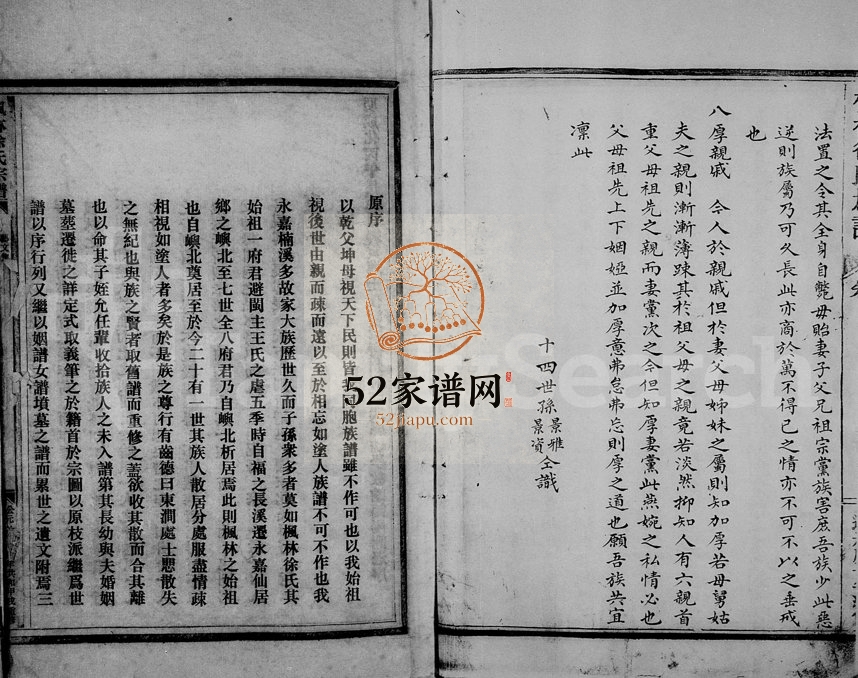 法置之令其全身自斃毋貽妻子父兄祖宗黨族害庶吾族少此惡
逆則族屬乃可久長此亦商於萬不得已之情亦不可不以之垂戒
也
八厚親戚 今人於親戚但於妻父母姊妹之屬則知加厚若母舅姑
夫之親則漸漸薄踈其於祖父母之親竟若淡然抑知人有六親首
重父母祖先之親而妻黨次之今但知厚妻黨此燕婉之私情必也
父母祖先上下姻婭並加厚意弗怠弗忘則厚之道也願吾族共宜
凛此
十四世孫景雅景資仝識
原序
以乾父坤母視天下民則皆我同胞族譜雖不作可也以我始祖
視後世由親而疎而遠以至於相忘如塗人族譜不可不作也我
永嘉楠溪多故家大族歷世久而子孫衆多者莫如楓林徐氏其
始祖一府君避閩主王氏之虐五季時自福之長溪遷永嘉仙居
鄉之嶼北至七世全八府君乃自嶼北析居焉此則楓林之始祖
也自嶼北奠居至於今二十有一世其族人散居分處服盡情疎
相視如塗人者多矣於是族之尊行有齒德曰東澗處士愳散失
之無紀也與族之賢者取舊譜而重修之蓋欲收其散而合其離
也以命其子姪允任輩收拾族人之未入譜第其長幼與夫婚姻
墓葬遷徙之詳定式取義筆之於籍首於宗圖以原枝派繼爲世
譜以序行列又繼以姻譜女譜墳墓之譜而累世之遺文附焉三
氏宗譜
52家谱网
52jiapu.com